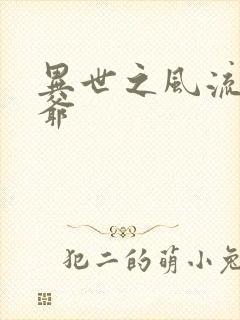 異世之風流
爺
犯二的萌小兔